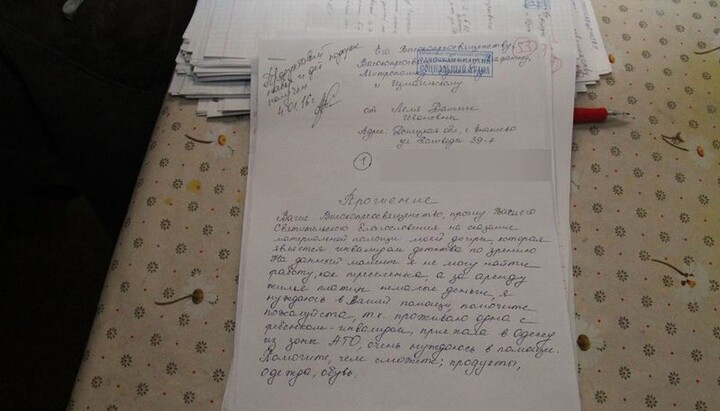 Продуктовый
набор и дет. подарок
получен
Его Высокопреосвященству,
Митрополиту
и Измаильскому
СОЦИАЛЬНЫЙ ОТДЕЛ
от
Адрес: Донецкая обл., г.
ул. Победы 39-
1
Прошение
Ваше Высокопреосвященство, прошу Вашего
Святительского благословения на оказание
материальной помощи моей дочери, которая
является инвалидом детства по зрению
На данный момент я не могу найти
работу, как переселенка, а за аренду
жилья плачу немалые деньги, я
нуждаюсь в Вашей помощи, помогите
пожалуйста, т.к. проживаю одна с
ребенком-инвалидом, приехала в Одессу
из зоны АТО, очень нуждаюсь в помощи.
Помогите, чем сможете; продукты,
одежда, обувь.